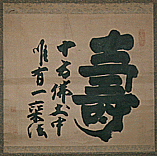 壽
十方佛土中
唯有一乗法